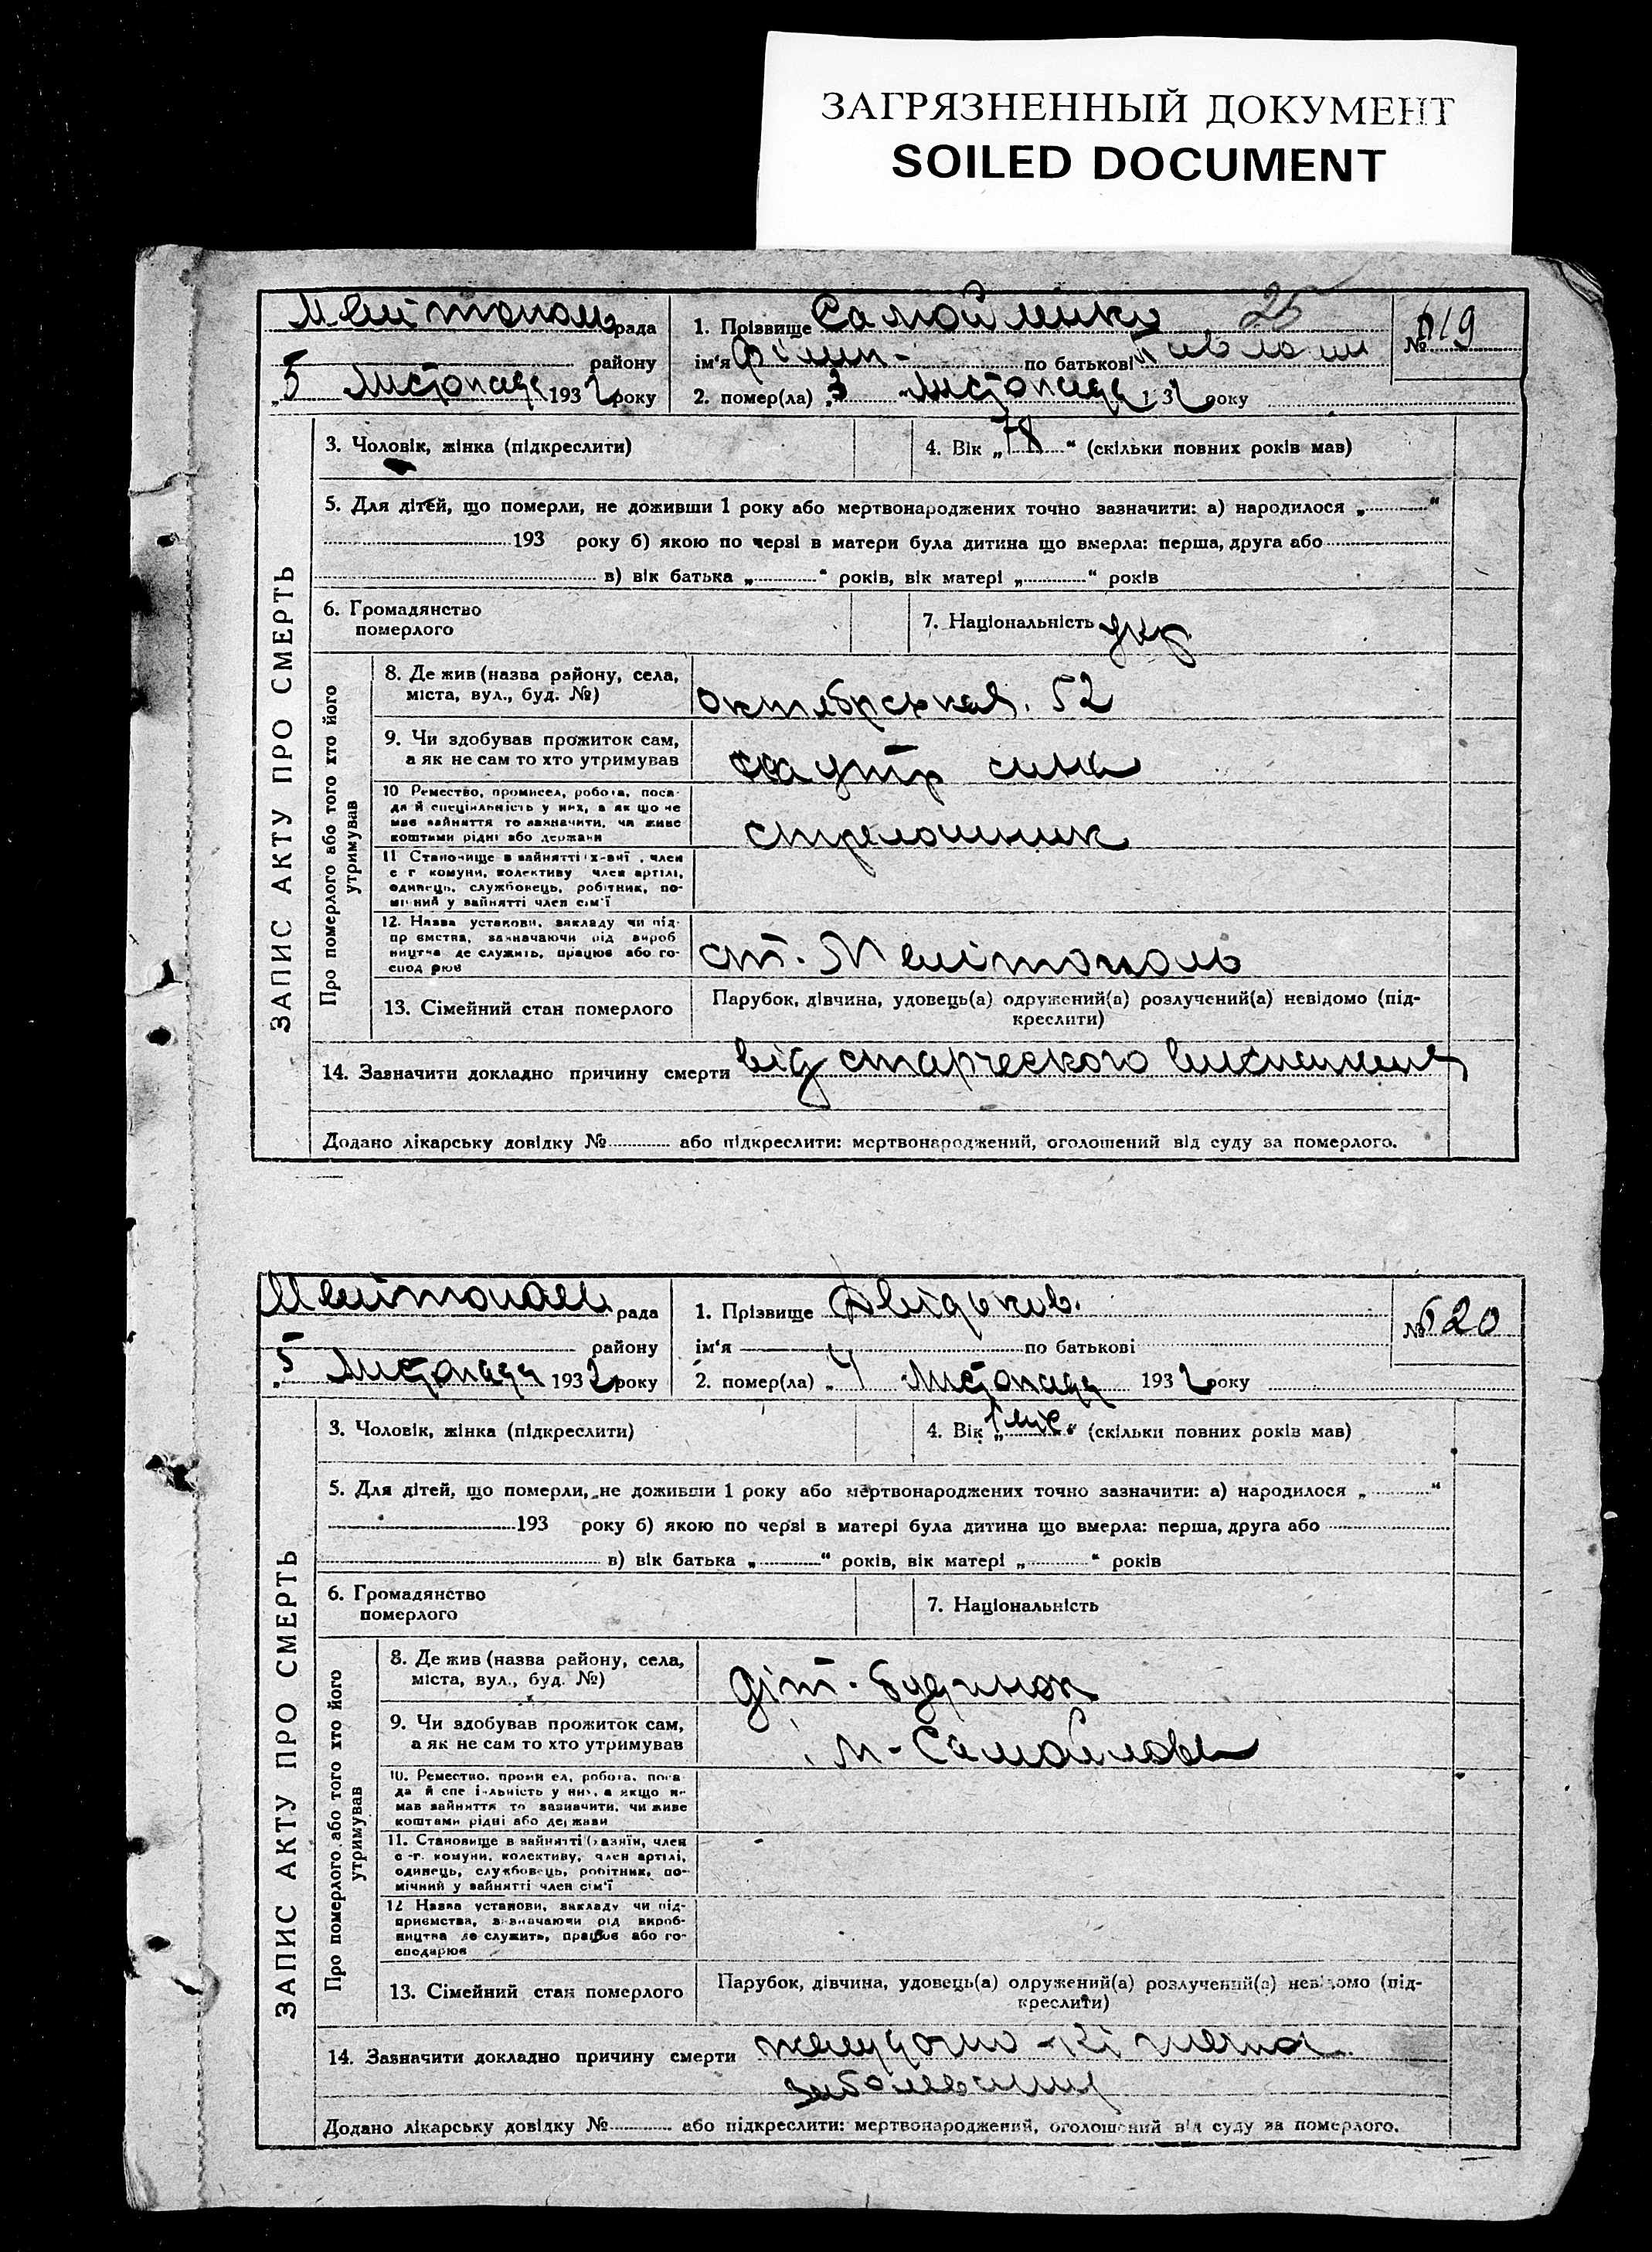 ЗАГРЯЗНЕННЫЙ ДОКУМЕНТ
SOILED DOCUMENT
ЗАПИС АКТУ ПРО СМЕРТЬ
рада
району
„5 листопада 1932 року
1. Прізвище Самойленко 25
ім'я по батькові
2. помер(ла) „3 листопада 1 32 року
№ 619
3. Чоловік, жінка (підкреслити)
4. Вік „78“ (скільки повних років мав)
5. Для дітей, що померли, не доживши 1 року або мертвонароджених точно зазначити: а) народилося „ “
193 року б) якою по черзі в матери була дитина що вмерла: перша, друга або
в) вік батька „ “ років, вік матері „ “ років
6. Громадянство
померлого
7. Національність укр
Про померлого або того хто його
утримував
8. Де жив (назва району, села,
міста, вул., буд. №)
октябрська 52
9. Чи здобував прожиток сам,
а як не сам то хто утримував
утр сина
10 Ремество, промисел, робота, поса-
да й спеціяльність у них, а як що не
має зайняття то зазначити, чи живе
коштами рідні або держави
стрелошник
11 Становище в зайнятті х-вні , член
с г комуни, колективу член артілі,
одинець, службовець, робітник, по-
мічний у зайнятті член сім'ї
12. Назва установи, закладу чи під-
пр ємства, зазначаючи рід вироб
ництва де служить, працює або го-
спод рює
ст. Мелітополь
13. Сімейний стан померлого
Парубок, дівчина, удовець(а) одружений(а) розлучений(а) невідомо (під-
креслити)
14. Зазначити докладно причину смерти від старческого
Додано лікарську довідку № або підкреслити: мертвонароджений, оголошений від суду за померлого.
ЗАПИС АКТУ ПРО СМЕРТЬ
рада
району
„5 листопада 1932 року
1. Прізвище
ім'я по батькові
2. помер(ла) „4 листопада 1932 року
№ 620
3. Чоловік, жінка (підкреслити)
4. Вік „1 міс“ (скільки повних років мав)
5. Для дітей, що померли, не доживши 1 року або мертвонароджених точно зазначити: а) народилося „ “
193 року б) якою по черзі в матері була дитина що вмерла: перша, друга або
в) вік батька „ “ років, вік матері „ “ років
6. Громадянство
померлого
7. Національність
Про померлого або того хто його
утримував
8. Де жив (назва району, села,
міста, вул., буд. №)
діт. будинок
9. Чи здобував прожиток сам,
а як не сам то хто утримував
м-Самойлова
10. Ремество, промисел, робота, поса-
да й спе і-льність у них, а якщо н-
має зайняття то зазначити, чи живе
коштами рідні або держави
11. Становище в зайнятті (хазяїн, член
с -г. комуни, колективу, член артілі,
одинець, службовець, робітник, по-
мічний у зайнятті член сім'ї
12 Назва установи, закладу чи під-
приємства, зазначаючи рід вироб-
ництва де служить, працює або го-
сподарює
13. Сімейний стан померлого
Парубок, дівчина, удовець(а) одружений(а) розлучений(а) невідомо (під-
креслити)
14. Зазначити докладно причину смерти желудочно-
Додано лікарську довідку № або підкреслити: мертвонароджений, оголошений від суду за померлого.